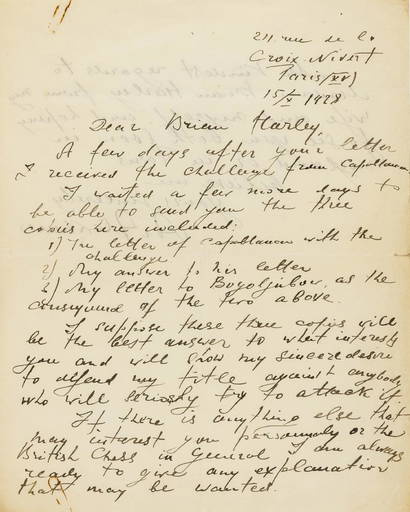 211 rue de la
Croix-Nivert
Paris (XV)
15/X 1928
Dear Brian Harley,
A few days after your letter
I received the challenge from Capablanca.
I waited a few more days to
be able to send you the three
copies here included:
1) The letter of Capablanca with the
challenge
2) My answer to his letter
3) My letter to Bogoljubow, as the
consequend of the two above.
I suppose these three copies will
be the best answer to what interests
you and will show my sincere desire
to defend my title against anybody
who will seriously try to attack it
If there is anything else that
may interest you personnaly or the
British Chess in General I am always
ready to give any explanation
that may be wanted.